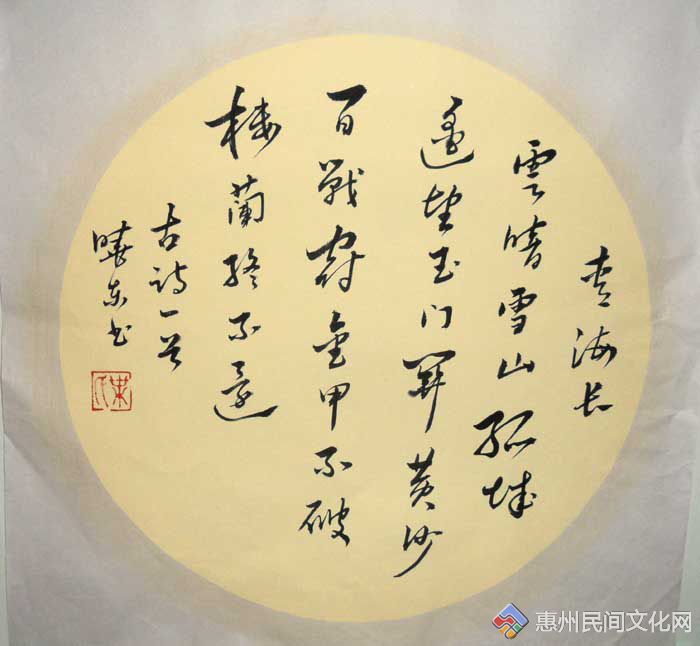 青海长
雲暗雪山孤城
遥望玉门關黄沙
百戰穿金甲不破
楼蘭终不還
古诗一首
曉东书
惠州民间文化网